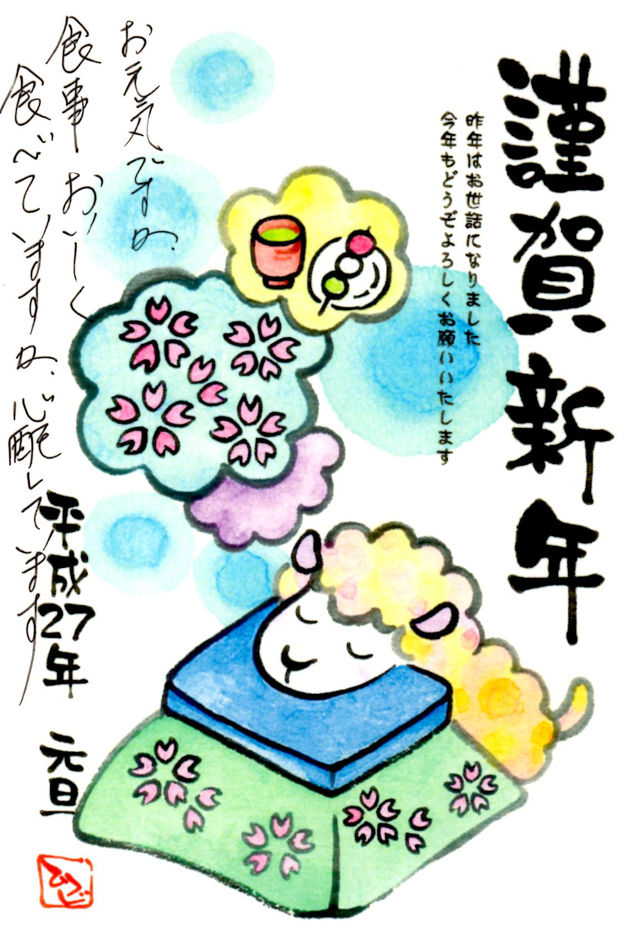 謹賀新年
昨年はお世話になりました
今年もどうぞよろしくお願いいたします
お元気ですか、
食事おいしく
食べていますか、心配しています
平成27年 元旦
ひつじ